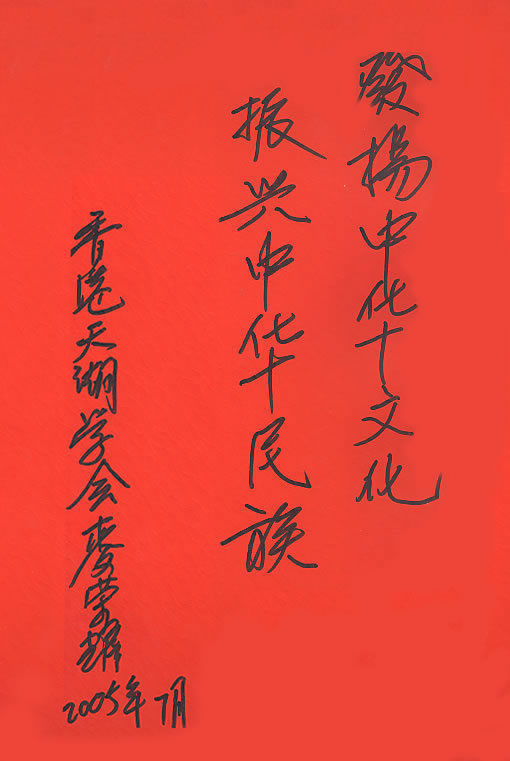 發揚中华文化
振兴中华民族
香港天湖学会麦荣耀
2005年7月